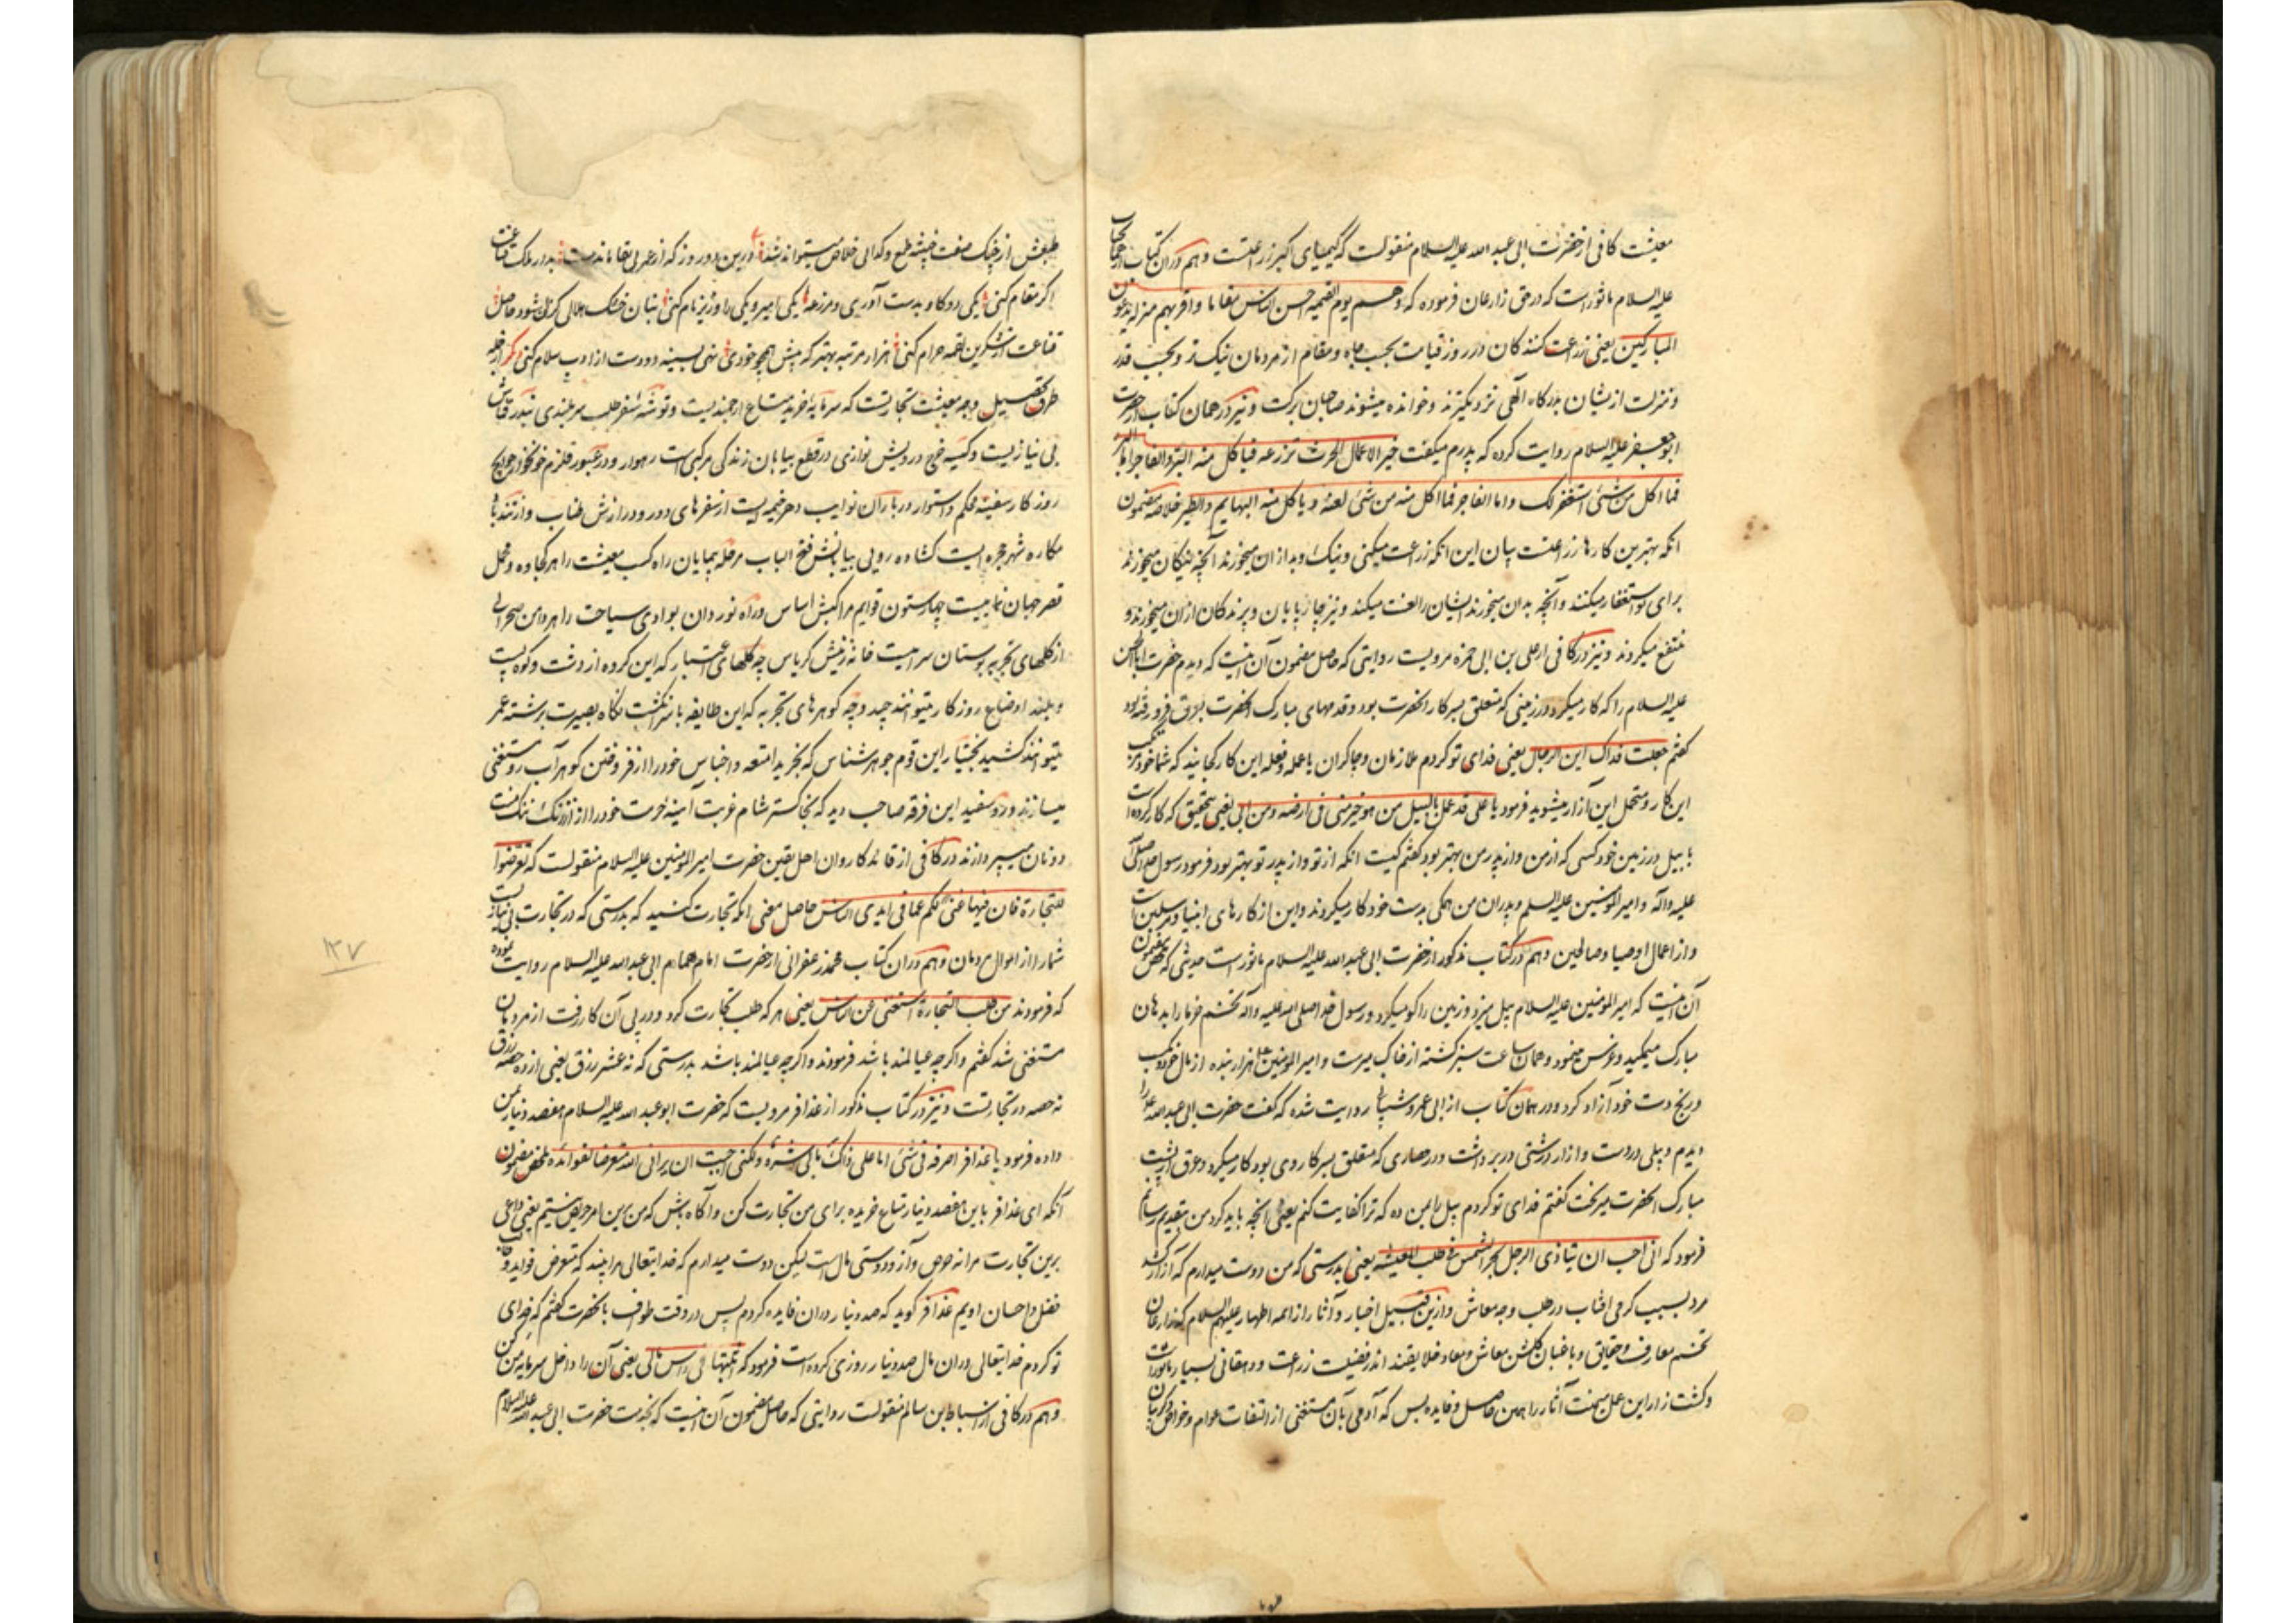 معیشت کافی از حضرت ابی عبد الله علیه السلام منقولست که کیمیای اکبر زراعتست و هم در ان کتاب از انجناب
علیه السلام ماثور است که در حق زارعان فرموده که و هم یوم القیمه احسن الناس مقاما و اقربهم منزله یدعون
المبارکین یعنی زراعت کنندکان در روز قیامت بحسب جاه و مقام از مردمان نیک تر و بحسب قدر
و منزلت ازیشان بدرکاه الهی نزدیکترند و خوانده میشوند صاحبان برکت و نیز در همان کتاب از حضرت
ابو جعفر علیه السلام روایت کرده که پدرم میکفت خیر الاعمال الحرث تزرعه فیاکل منه البر و الفاجر اما البر
فما اکل من شئ استغفر لک و اما الفاجر فما اکل منه من شئ لعنه و یاکل منه البهایم و الطیر خلاصه مضمون
انکه بهترین کارها زراعتست بیان این انکه زراعت میکنی و نیک و بد ازان میخورند آنچه نیکان میخورند
برای تو استغفار میکنند و آنچه بدان میخورند ایشان را لعنت میکند و نیز چارپایان و پرندکان ازان میخورند و
منتفع میکردند و نیز در کافی از علی بن ابی حمزه مرویست روایتی که حاصل مضمون آن اینست که دیدم حضرت ابا الحسن
علیه السلام را که کار میکرد در زمینی که متعلق بسرکار انحضرت بود و قدمهای مبارک انحضرت بعرق فرو رفته بود
کفتم جعلت فداک این الرجال یعنی فدای تو کردم ملازمان و چاکران یا عمله و فعله این کار کجایند که شما خود مرتکب
این کار و متحمل این آزار میشوید فرمود یا علی قد عمل بالبیل من هو خیر منی فی ارضه و من ابی یعنی بتحقیق که کار کرده است
با بیل در زمین خود کسی که از من و از پدر من بهتر بود کفتم کیست انکه از تو و از پدر تو بهتر بود فرمود رسول صلی الله
علیه و اله و امیر المومنین علیه السلم و پدران من همکی بدست خود کار میکردند و این از کارهای انبیا و مرسلین است
و از اعمال اوصیا و صالحین و هم در کتاب مذکور از حضرت ابی عبد الله علیه السلام ماثور است حدیثی که ملخص مضمون
آن اینست که امیر المومنین علیه السلام بیل میزد و زمین را کو میکرد و رسول خدا صلی الله علیه و آله تخم خرما را بدهان
مبارک میمکید و غرس مینمود و همان ساعت سبز کشته از خاک میرست و امیر المومنین هزار بنده از مال خود بکسب
و رنج دست خود آزاد کرد و در همان کتاب از ابی عمرو شیبانی روایت شده که کفت حضرت ابی عبد الله را
دیدم و بیلی در دست و ازار درشتی در بر داشت و در حصاری که متعلق بسرکار وی بود کار میکرد و عرق از پشت
مبارک انحضرت میریخت کفتم فدای تو کردم بیل را بمن ده که ترا کفایت کنم یعنی انچه باید کرد من بتقدیم رسانم
فرمود که انی احب ان یتاذی الرجل بحر الشمس فی طلب المعیشه یعنی بدرستی که من دوست میدارم که آزار کشد
مرد بسبب کرمی افتاب در طلب وجه معاش و ازین قبیل اخبار و آثار از ائمه اطهار علیهم السلام که زارعان
تخم معارف و حقایق و باغبان کلشن معاش و معاد خلایقند اندر فضیلت زراعت و دهقانی بسیار ماثور است
و کشت زار این عمل میمنت آثار را همین حاصل و فایده بس که آدمی بآن مستغنی از التفات عوام و خواص
طبعش از چنک صفت خبیثه طمع و کدائی خلاص میتواند شد درین دو روز که از عمر بی بقا ماندست بدر ملک قناعت
اکر مقام کنی یکی دو کاو بدست آوری و مزرعه یکی امیر و یکی را وزیر نام کنی بنان خشک حلالی کزان شود حاصل
قناعت از شکرین لقمه حرام کنی هزار مرتبه بهتر که پیش همچو خودی نهی بسینه دو دست از ادب سلام کنی دیکر از جمله
طرق تحصیل وجه معیشت تجارتست که سرمایه خرید متاع ارجمندیست و توشه سفر طلب سر بلندی بندر قماش
بی نیازیست و کیسه خرج درویش نوازی در قطع بیابان زندکی مرکبی است رهوار و در عبور قلزم خونخوار حوایج
روز کار سفینه محکم و استوار در باران نوایب دهر خیمه ایست از سفرهای دور و درازش طناب و از تند باد
مکاره شهر حجره ایست کشاده رویی بیابانش فتح الباب مرحله پیمایان راه کسب معیشت را هر کجاوه و محمل
قصر جهان نماییست چهار ستون قوایم مراکبش اساس و راه نوردان بوادی سیاحت را هر دامن صحرائی
از کلهای تجربه بوستان سراییست خانه زینش کریاس چه کلهای اعتبار که این کروه از دشت و کوه پست
و بلند اوضاع روز کار میتوانند چید و چه کوهرهای تجربه که این طایفه با سر انکشت نکاه بصیرت برشته عمر
میتوانند کشید بختیار این قوم جوهر شناس که بخرید امتعه و اجناس خود را از فروختن کوهر آب رو مستغنی
میسازند و رو سفید این فرقه صاحب دید که بخاکستر شام غربت آیینه حرمت خود را از زنک ننک منت
دونان میپردازند در کافی از قائد کاروان اهل یقین حضرت امیر المومنین علیه السلام منقولست که تعرضوا
للتجارة فان فیها غنی لکم عما فی ایدی الناس حاصل معنی انکه تجارت کنید که بدرستی که در تجارت بی نیازیست
شما را از اموال مردمان و هم در ان کتاب محمد زعفرانی از حضرت امام همام ابی عبد الله علیه السلام روایت نموده
که فرمودند من طلب التجارة استغنی عن الناس یعنی هر که طلب تجارت کرد و در پی آن کار رفت از مردمان
مستغنی شد کفتم و اکر چه عیالمند باشد فرمودند و اکر چه عیالمند باشد بدرستی که نه عشر رزق یعنی از ده حصه رزق
نه حصه در تجارتست و نیز در کتاب مذکور از عذافر مرویست که حضرت ابو عبد الله علیه السلام هفصد دینار بمن
داده فرمود یا عذافر اصرفه فی شئ اما علی ذاک مابی شره ولکنی احببت ان یرانی الله متعرضا لفوائده ملخص مضمون
آنکه ای عذافر باین هفصد دینار متاع خریده برای من تجارت کن و آکاه باش که من برین امر حریص نیستم یعنی داعی
برین تجارت مرا نه حرص و آز و دوستی مال است لیکن دوست میدارم که خدایتعالی مرا بیند که متعرض فواید و طالب
فضل و احسان اویم عذافر کوید که صد دینار در ان فایده کردم پس در وقت طواف با نحضرت کفتم که فدای
تو کردم خدایتعالی در ان مال صد دینار روزی کرده است فرمود که اثبتها فی راس مالی یعنی آن را داخل سرمایه من کن
و هم در کافی از اسباط بن سالم منقولست روایتی که حاصل مضمون آن اینست که بخدمت حضرت ابی عبد الله علیه السلام
۱۲۷